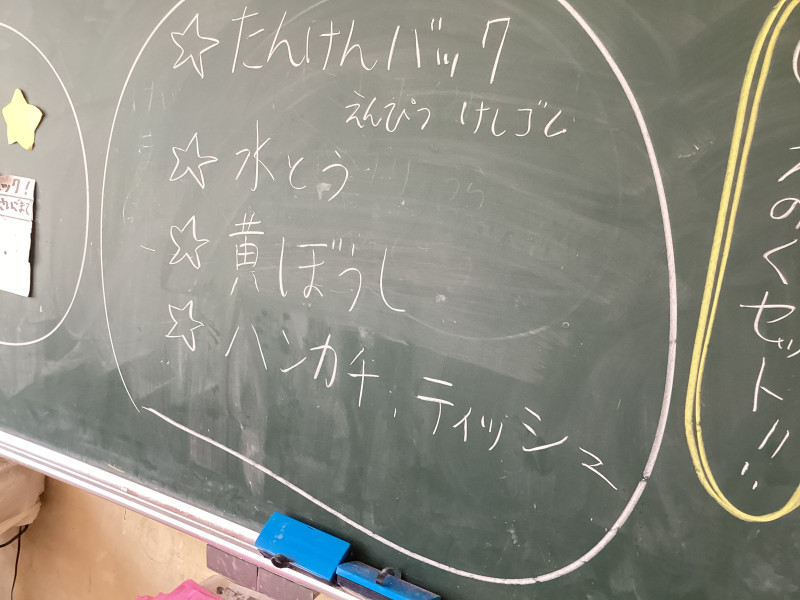 ☆たんけんバック
えんぴつ けしゴム
☆水とう
☆黄ぼうし
☆ハンカチ、ティッシュ
えのぐセット!!
ック!